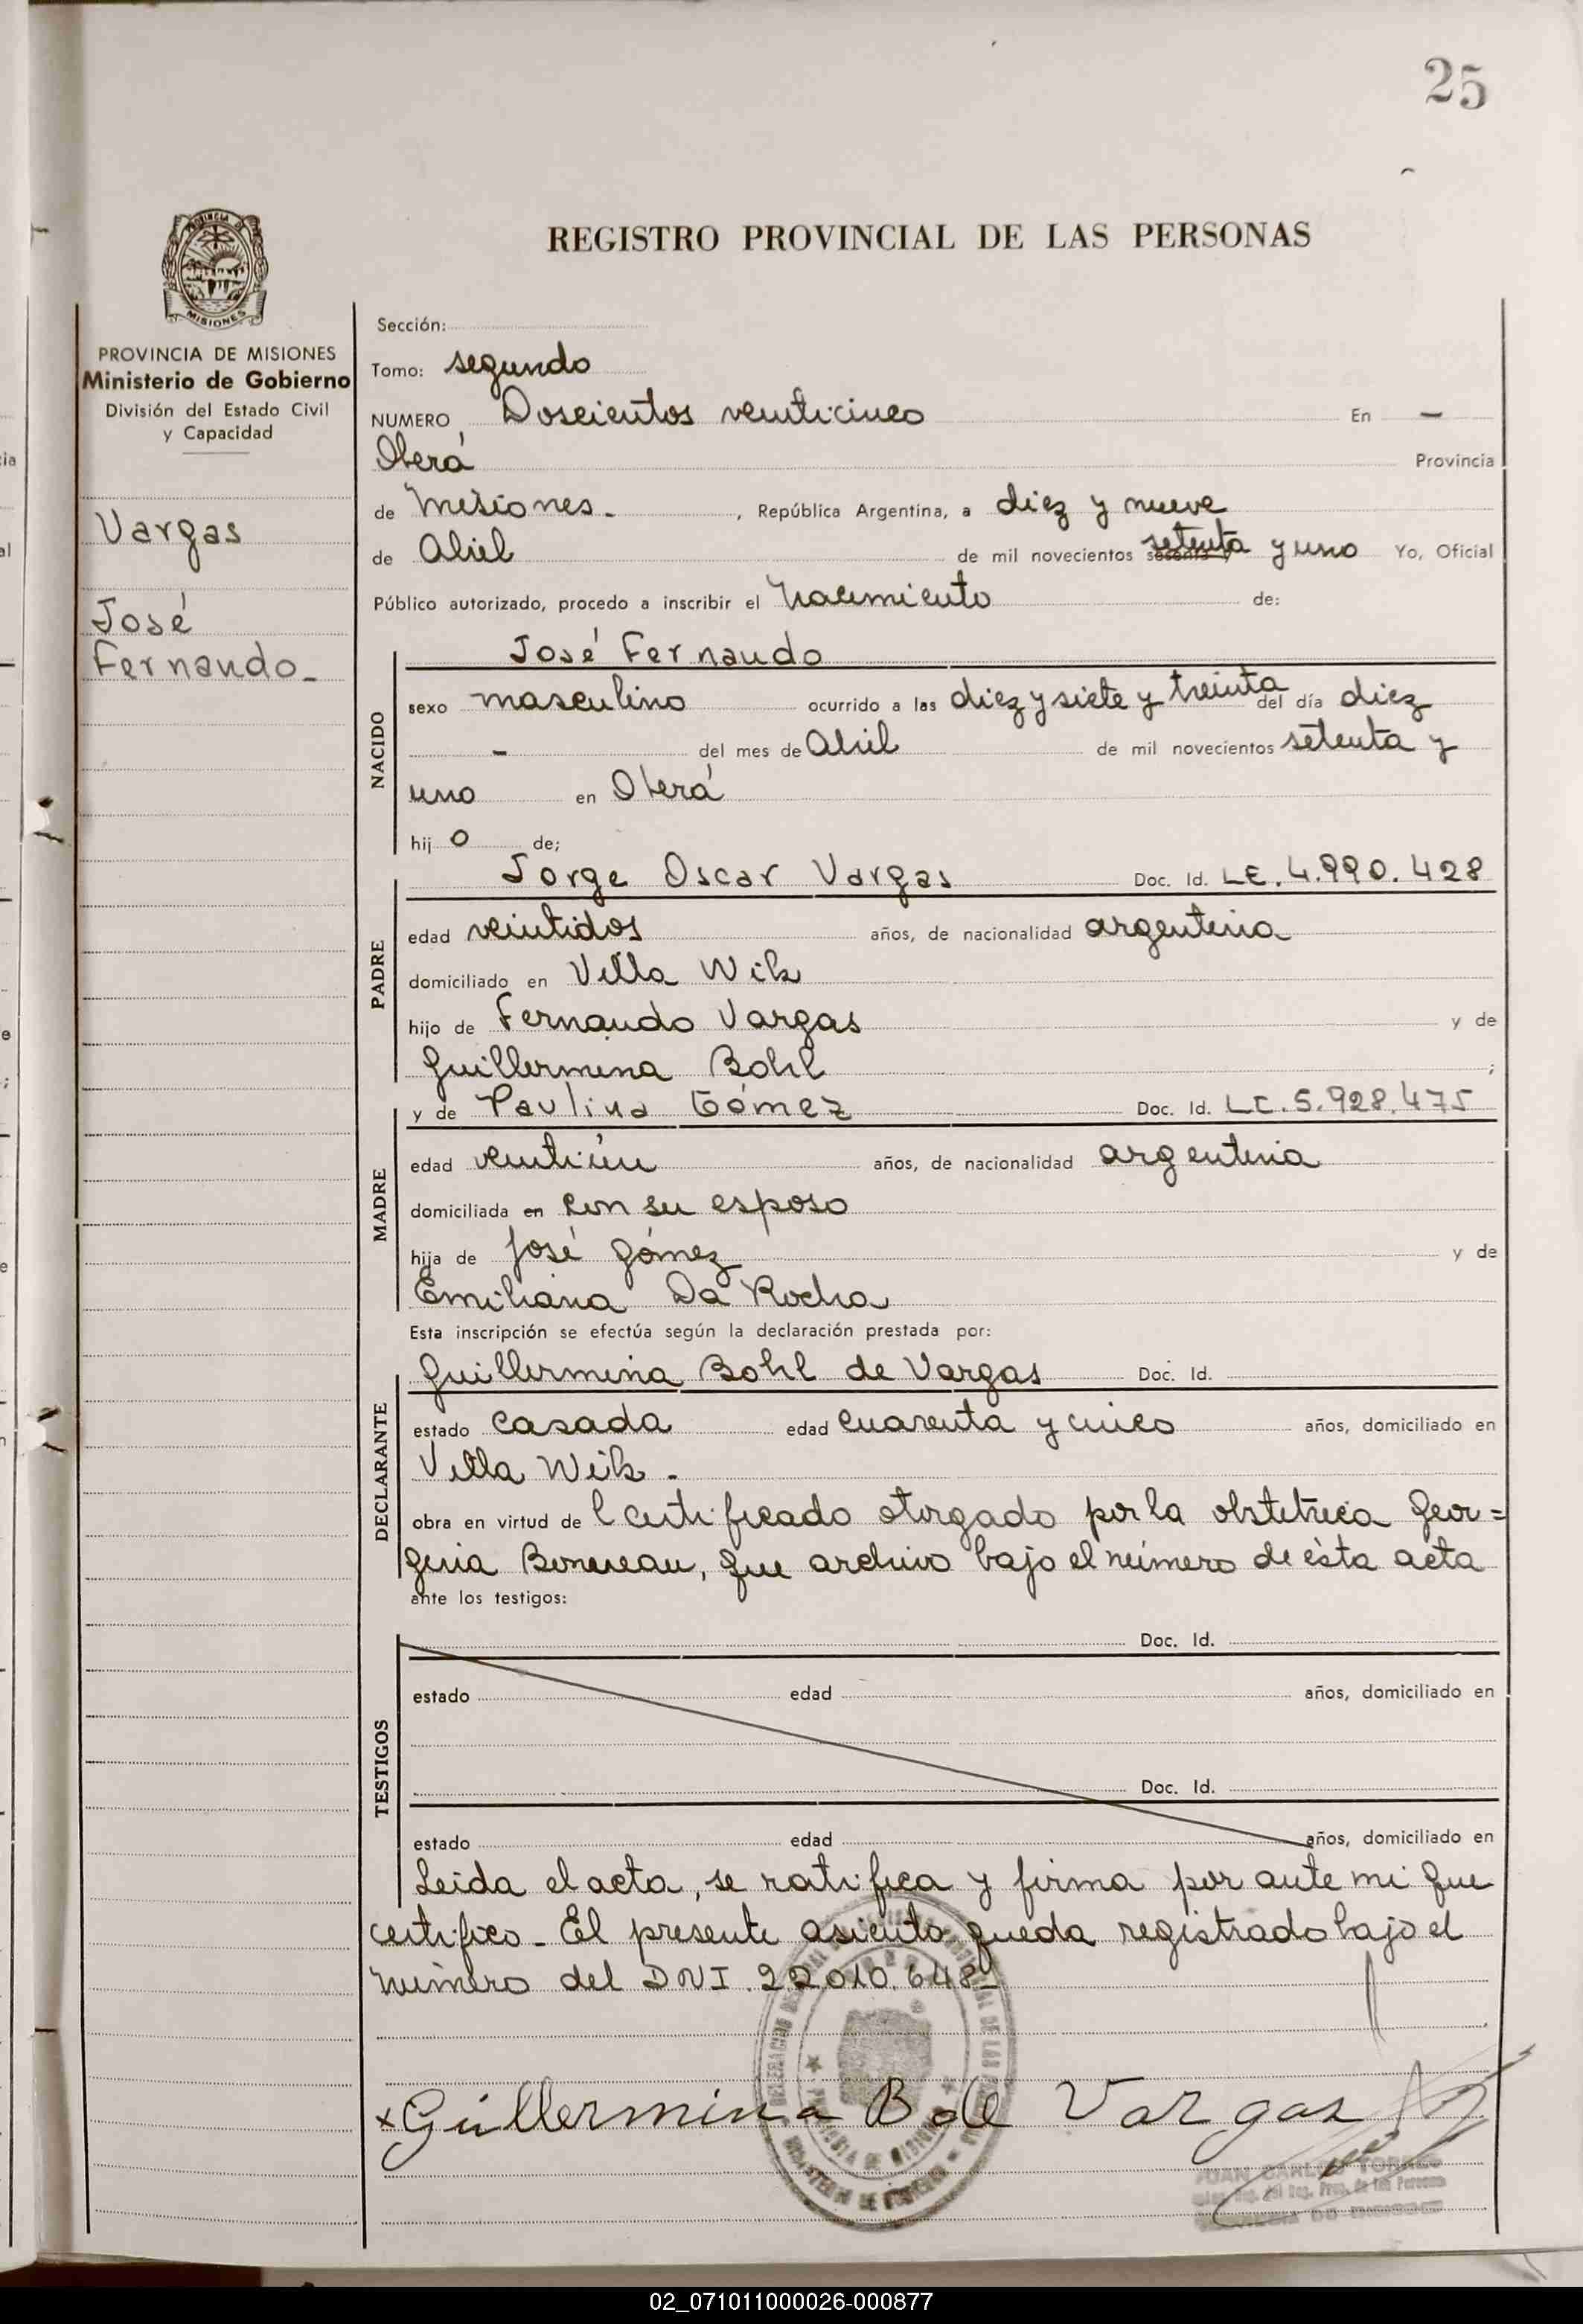 25
REGISTRO PROVINCIAL DE LAS PERSONAS
PROVINCIA
MISIONES
PROVINCIA DE MISIONES
Ministerio de Gobierno
División del Estado Civil
y Capacidad
Vargas
José
Fernando_
Sección:
Tomo: segundo
NUMERO Doscientos venticinco En —
Oberá Provincia
de Misiones. , República Argentina, a diez y nueve
de Abril de mil novecientos setenta y uno Yo, Oficial
Público autorizado, procedo a inscribir el nacimiento de:
José Fernando
NACIDO
sexo masculino ocurrido a las diez y siete y treinta del día diez
- del mes de Abril de mil novecientos setenta y
uno en Oberá
hijo de;
Jorge Oscar Vargas Doc. Id. LE. 4.990.428
PADRE
edad veintidos años, de nacionalidad argentina
domiciliado en Villa Wik
hijo de Fernando Vargas y de
Guillermina Bohl ;
y de Paulina Gómez Doc. Id. LC. 5.928.475
MADRE
edad ventiún años, de nacionalidad argentina
domiciliada en con su esposo
hija de José Gómez y de
Emiliana Da Rocha
Esta inscripción se efectúa según la declaración prestada por:
Guillermina Bohl de Vargas Doc. Id.
DECLARANTE
estado casada edad cuarenta y cinco años, domiciliado en
Villa Wik.
obra en virtud de l certificado otorgado por la obstetrica Geor=
gina , que archivo bajo el número de ésta acta
ante los testigos:
TESTIGOS
Doc. Id.
estado edad años, domiciliado en
Doc. Id.
estado edad años, domiciliado en
Leida el acta, se ratifica y firma por ante mi que
certifico_ El presente asiento queda registrado bajo el
número del DNI 22.010.648_
x Guillermina B de Vargas
JUAN CARLOS
02_071011000026-000877